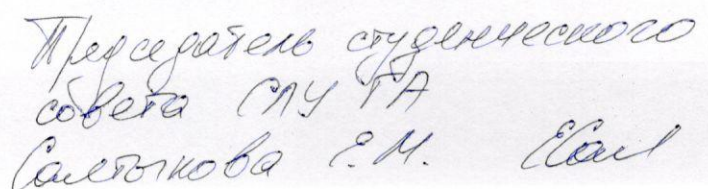 Председатель студенческого
совета СЛУ ГА
Салтыкова Е.М.